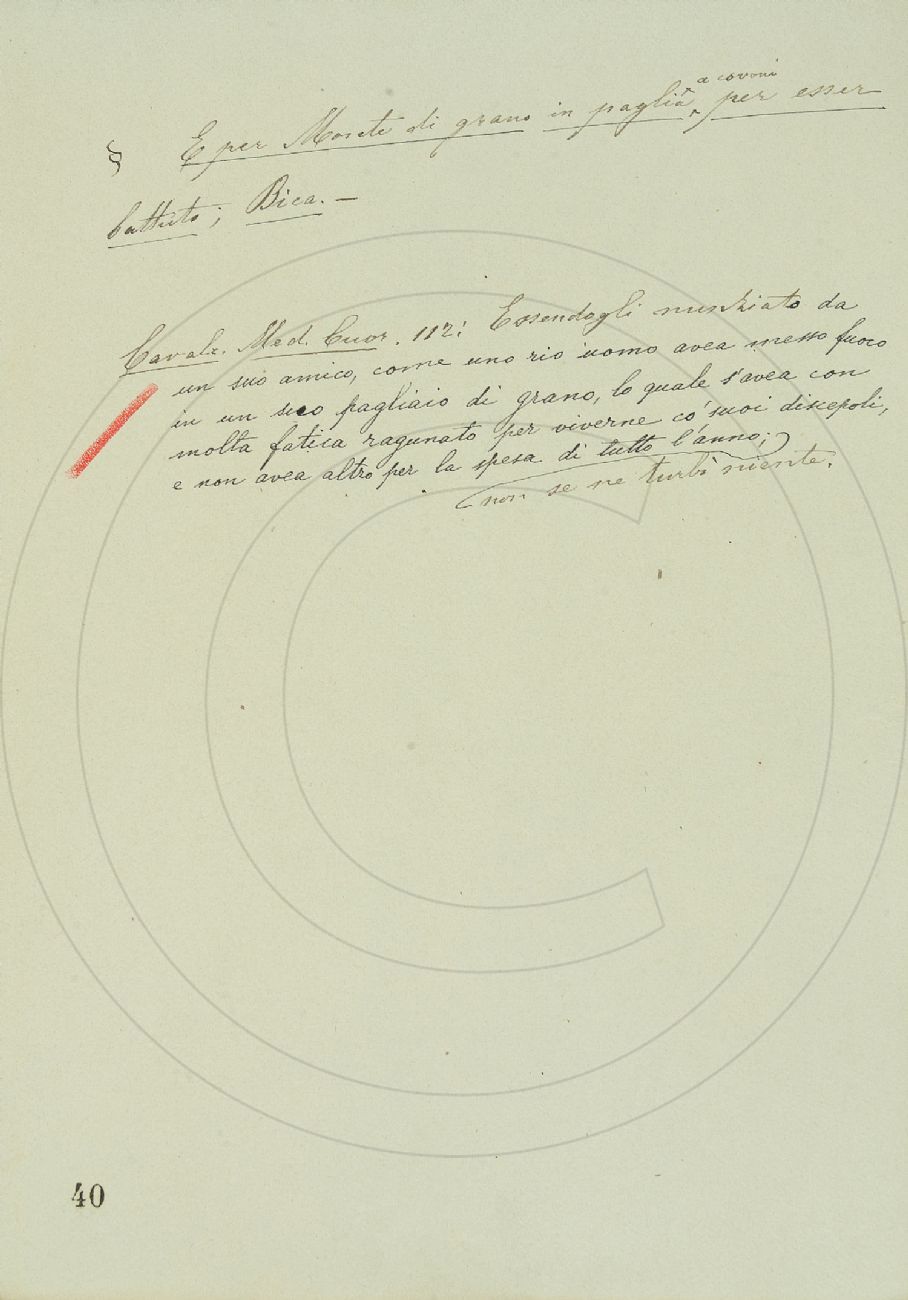 a covoni
§ E per Monte di grano in paglia ‸ per esser
battuto; Bica. —
Cavalc. Med. Cuor. 112: Essendogli nunziato da
un suo amico, come uno rio uomo avea messo fuoco
in un suo pagliaio di grano, lo quale s'avea con
molta fatica ragunato per viverne co' suoi discepoli,
e non avea altro per la spesa di tutto l'anno;
non se ne turbò niente.
40